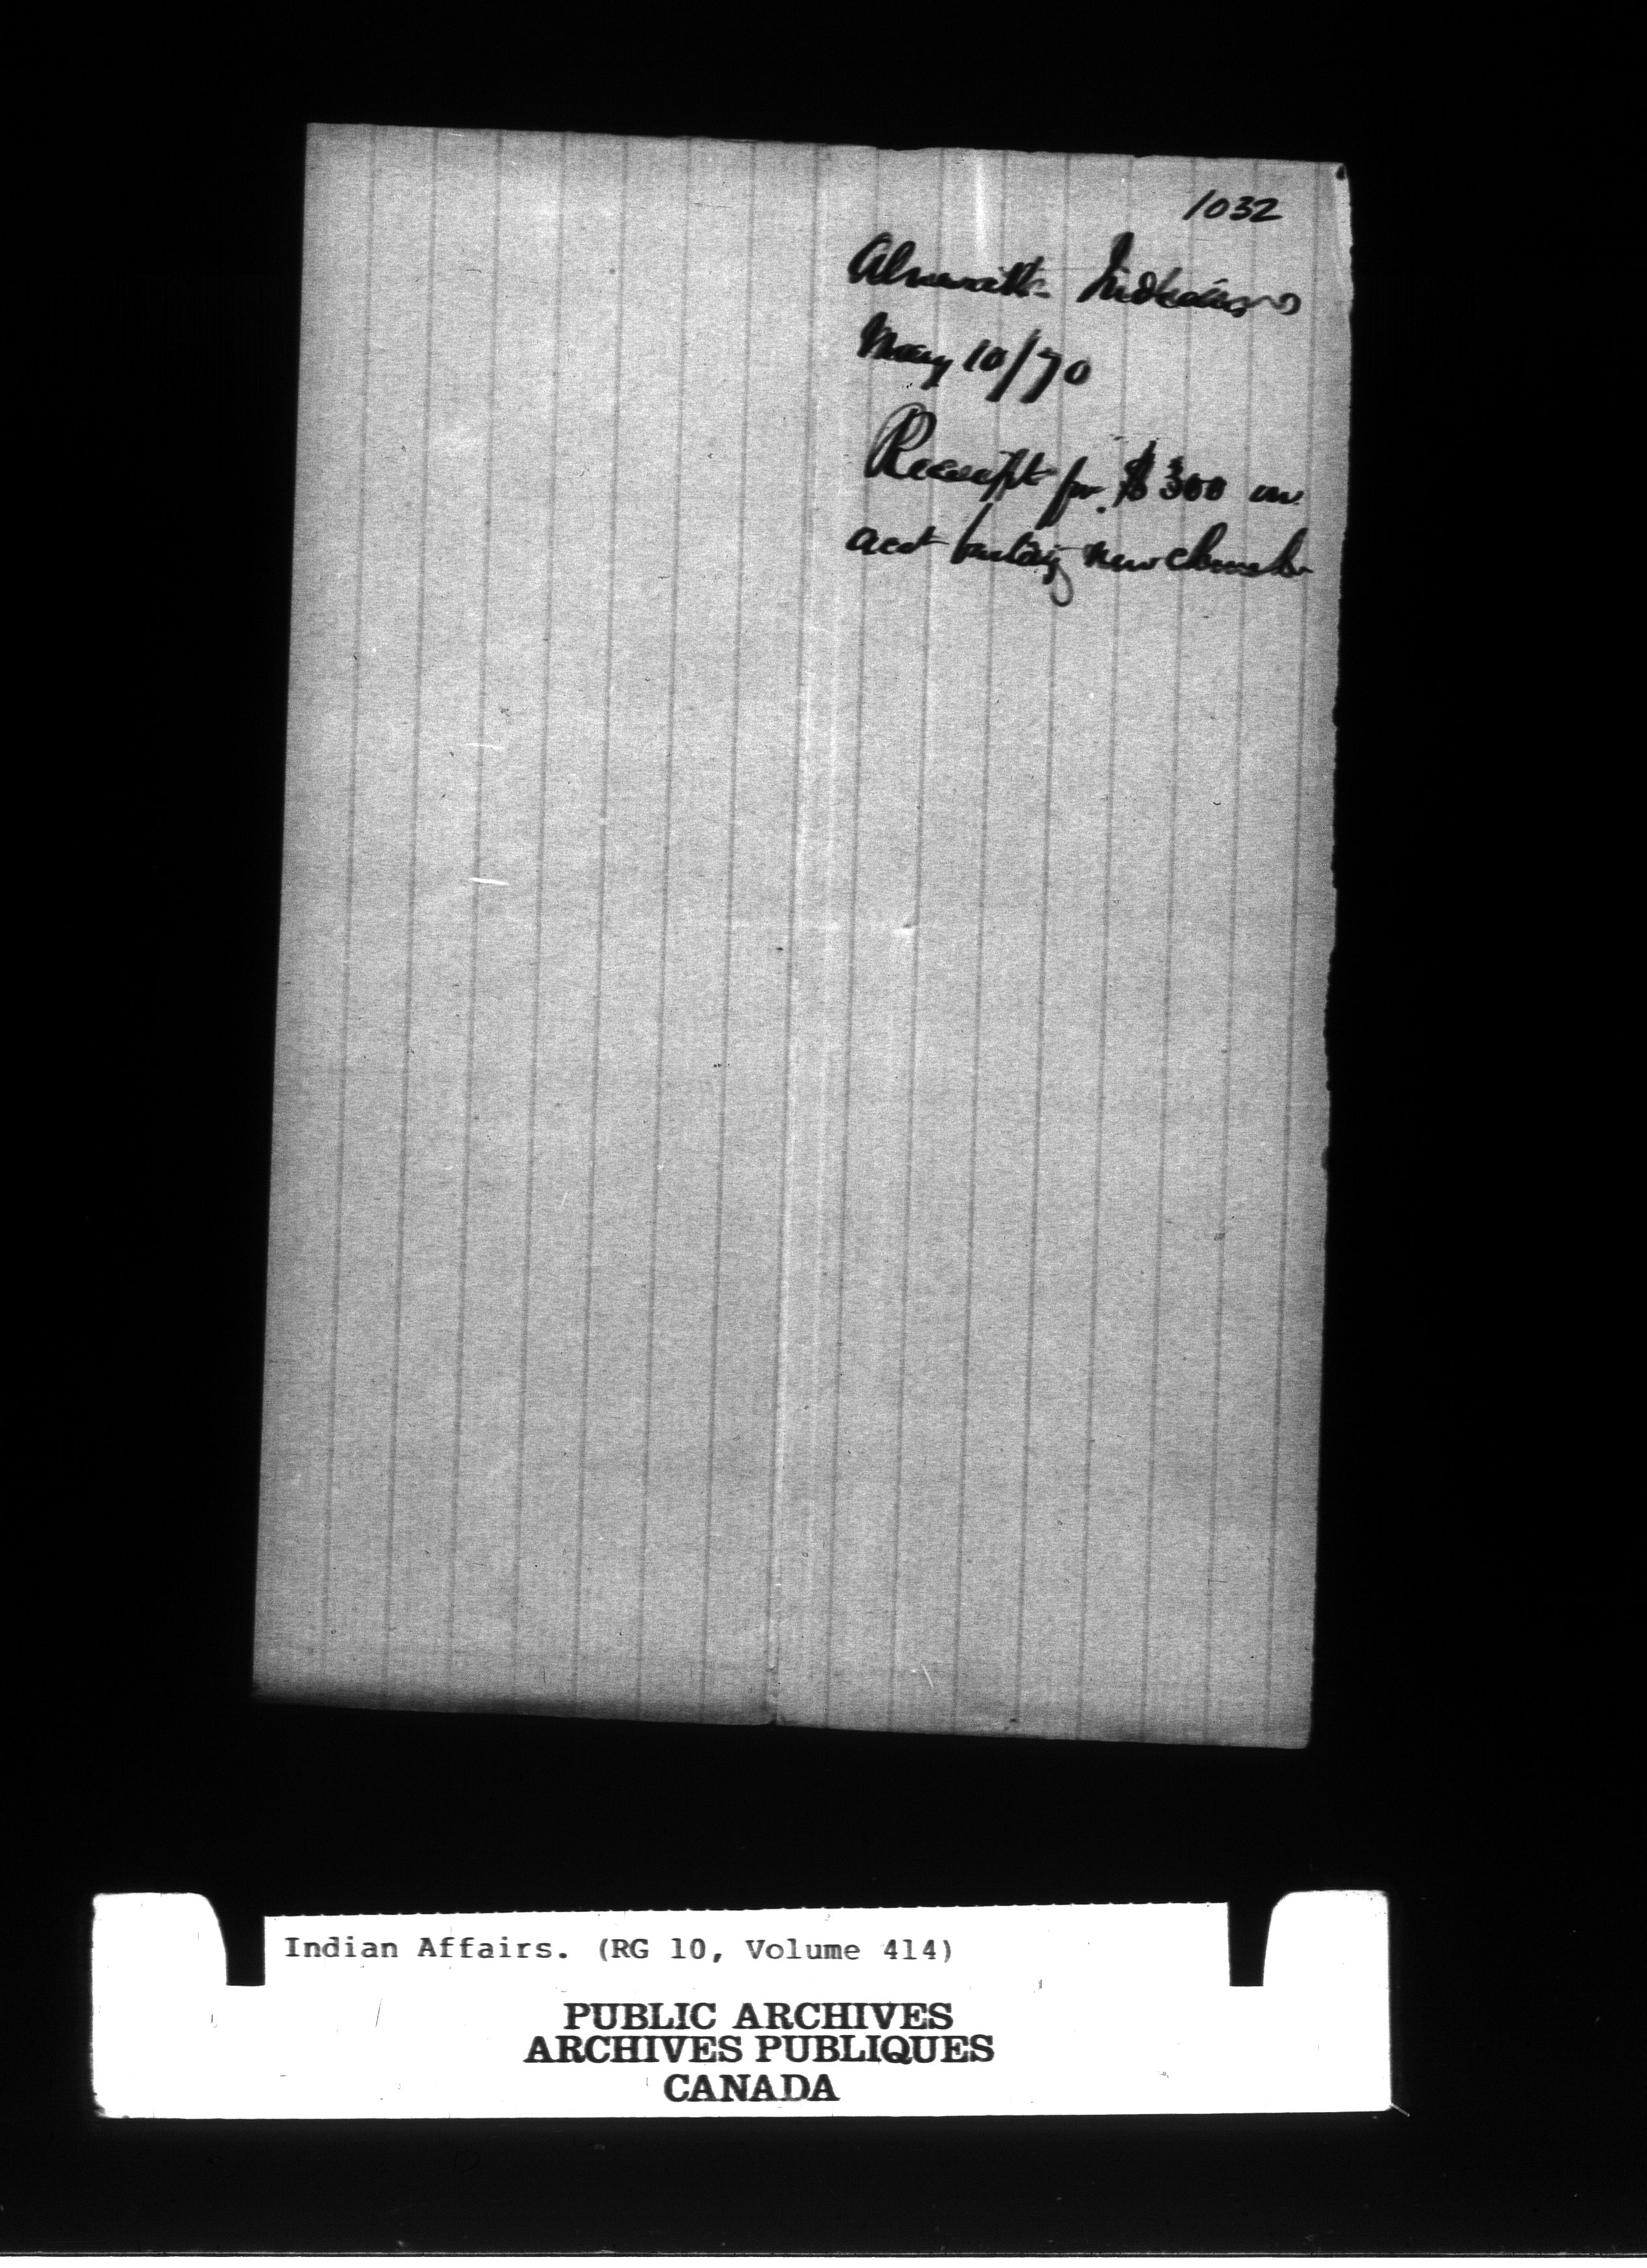 1032
Alnwick Indians
May 10/70
Receipt for $300 on
acct building new church
Indian Affairs. (RG 10, Volume 414)
PUBLIC ARCHIVES
ARCHIVES PUBLIQUES
CANADA